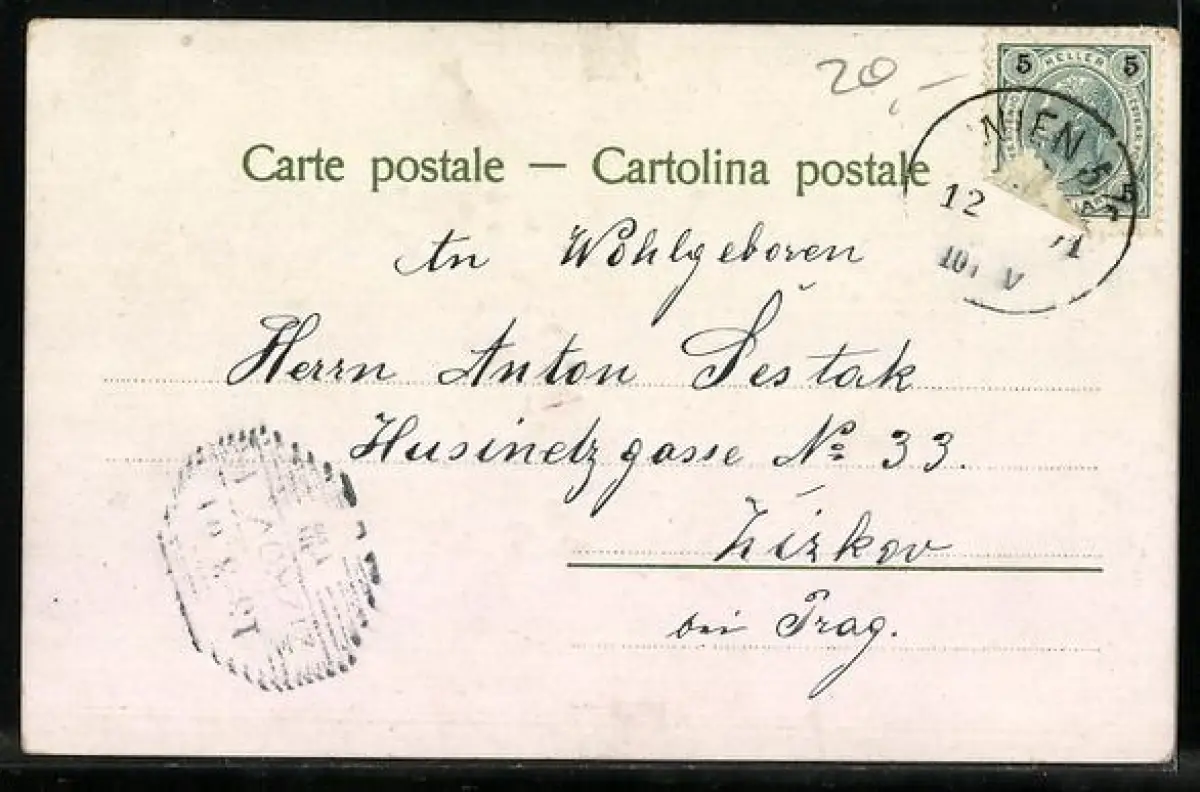 20,-
5 HELLER 5
5
Carte postale — Cartolina postale
WIEN
12
An Wohlgeboren
Herrn Anton Šestak
Husinetzgasse No 33.
Žižkov
bei Prag.